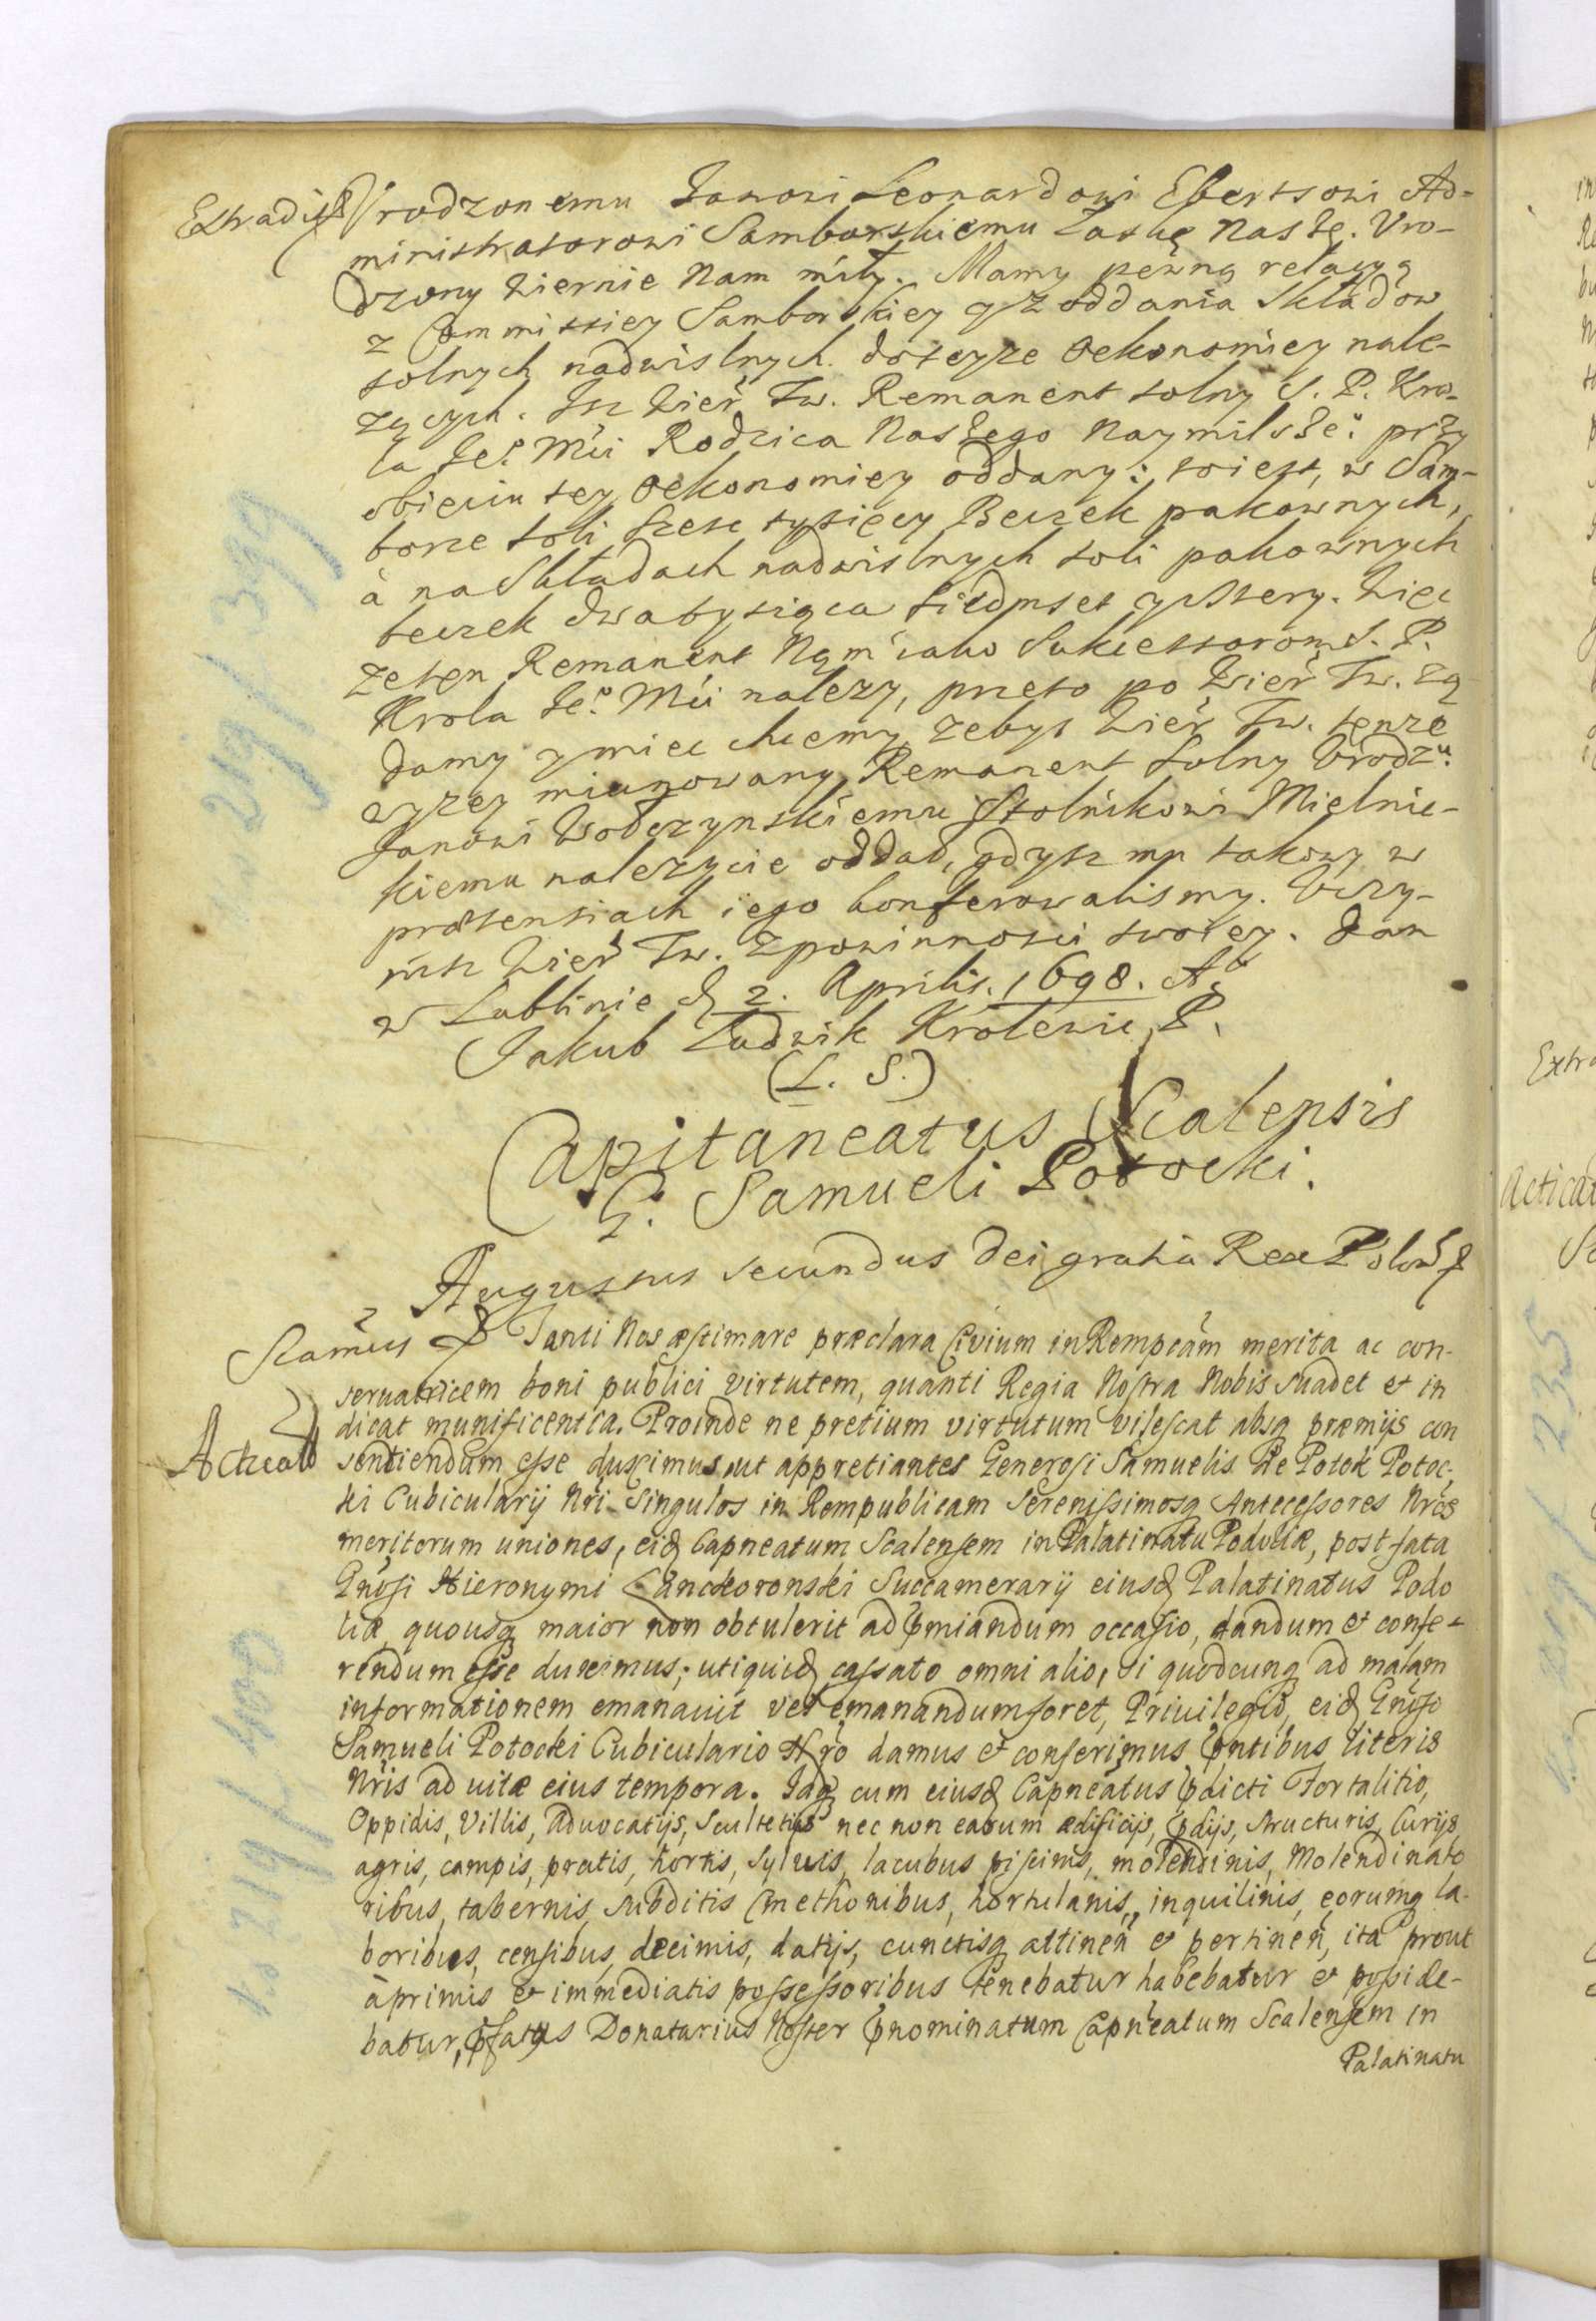 Extradiss Urodzonemu Janowi Leonardowi Ebertsowi Ad-
ministratorowi Samborskiemu Łaskę Naszę. Vro-
dzony Wiernie Nam miły. Mamy pewną relacyą
z Commissiey Samborskiey y z oddania Składow
solnych nadwislnych. doteyze Oekonomiey nale-
zących. Isz Wierć Tw. Remanent solny S. P. Kro-
la Jeº Mći Rodzica Naszego Naymilszeº przy
obięciu tey Oekonomiey oddany: toiest, w Sam-
borze soli szesc tysięcy Beczek pakownych,
à na Składach nadwislnych soli pakownych
beczek dwa tysiąca siedmset cztery. Więc
ze ten Remanent Nąm iako Sukcessorom S. P.
Krola Jeº Mći nalezy, przeto po Wierć Tw. zą
damy y miec chcemy, zebys Wierć Tw. tenze
wyzey mianowany Remanent solny Vrodzu
Janowi Wobczynskiemu Stolnikowi Mielnic-
kiemu nalezycie oddał, gdysz mu takowy w
prætensiach iego konferowalismy. Vczy-
nisz Wierć Tw. z powinnosci swoiey. Dan
w Lublinie d 2. Aprilis. 1698. Aº
Jakub Ludwik Krolewic P.
(L. S.)
Capitaneatus Scalensis
G. Samueli Potocki.
Augustus Secundus Dei gratia Rex Polon̄ &
Sıgn̄. & Tanti Nos æstimare præclara Civium in Rempcam merita ac con-
servatricem boni publici virtutem, quanti Regia Nostra Nobis suadet et in
dicat munificentia. Proinde ne pretium virtutum vilescat absq præmijs con
Acticat sentiendum esse duximus, ut appretiantes Generosi Samuelis de Potok Potoc-
ki Cubicularij Nri Singulos in Rempublicam Serenissimosq Antecessores Nros
meritorum uniones, eid Capneatum Scalensem in Palatinatu Podoliæ, post fata
Gnosi Hieronymi Lanckoronski Succamerarij eiusd Palatinatus Podo
liæ, quousq maior non obtulerit ad pmiandum occasio, dandum et confe-
rendum esse duximus; uti quid cassato omni alio, si quodcunq ad malam
informationem emanavit vel emanandum foret, Privilegio, eid Gnoso
Samueli Potocki Cubiculario Nro damus et conferimus pntibus literis
Nris ad vitæ eius tempora. Idq cum eiusd Capneatus pdicti Fortalitio,
Oppidis, Villis, Advocatijs, Scultetijs nec non earum ædificijs, pdijs, structuris, Curijs
agris, campis, pratis, hortis, Sylvis, lacubus piscinis, molendinis, Molendinato
ribus, tabernis, subditis Cmethonibus, hortulanis, inquilinis, eorumq la-
boribus, censibus, decimis, datijs, cunctisq attinen et pertinen, ita prout
à primis et immediatis possessoribus tenebatur habebatur et posside-
batur, pfatus Donatarius Noster pnominatum Capneatum Scalensem in
Palatinatu